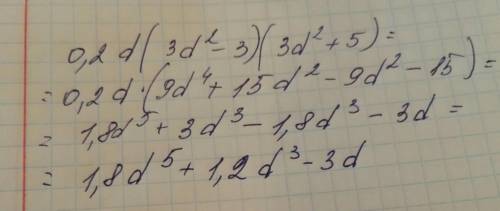 0,2 d ( 3d² - 3)( 3d² + 5) =
= 0,2 d · (9d⁴ + 15d² - 9d² - 15) =
= 1,8d⁵ + 3d³ - 1,8d³ - 3d =
= 1,8d⁵ + 1,2d³ - 3d